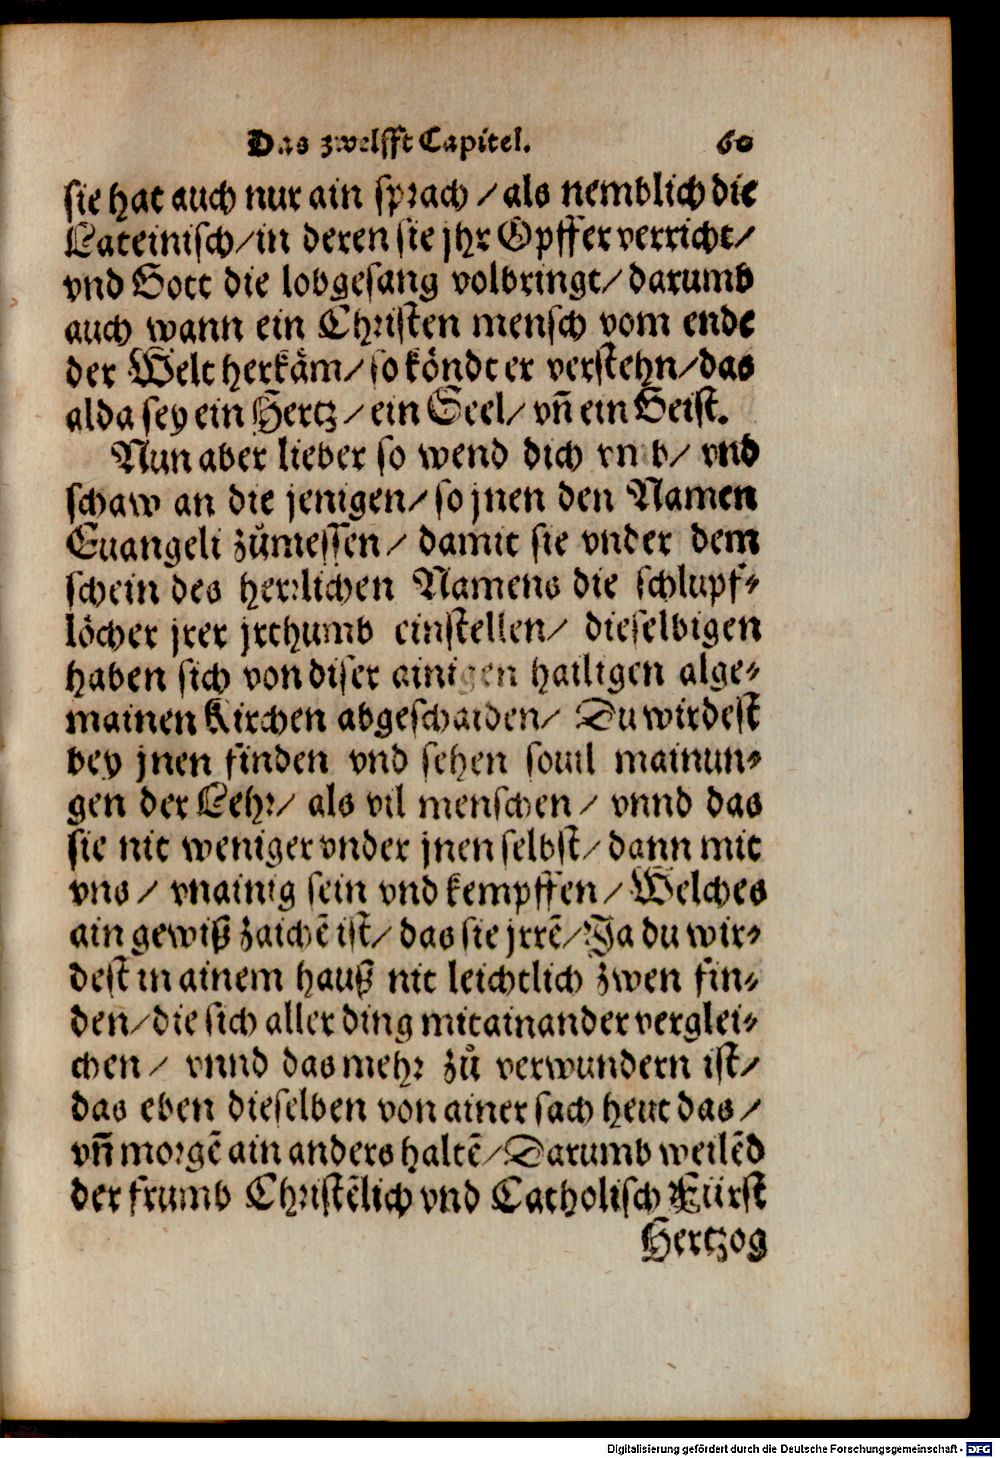 Das zwelfft Capitel. 60
sie hat auch nur ain sprach / als nemblich die
Lateinisch / in deren sie jhr Opffer verricht /
vnd Gott die lobgesang volbringt / darumb
auch wann ein Christen mensch vom ende
der Welt herkäm / so köndt er verstehn / das
alda sey ein Hertz / ein Seel / vñ ein Geist.
Nun aber lieber so wend dich vmb / vnd
schaw an die jenigen / so jnen den Namen
Euangeli zůmessen / damit sie vnder dem
schein des herrlichen Namens die schlupf⸗
löcher jrer jrthumb einstellen / dieselbigen
haben sich von diser ainigen hailigen alge⸗
mainen Kirchen abgeschaiden / Du wirdest
bey jnen finden vnd sehen souil mainun⸗
gen der Lehr / als vil menschen / vnnd das
sie nit weniger vnder jnen selbst / dann mit
vns / vnainig sein vnd kempffen / Welches
ain gewiß zaichẽ ist / das sie jrrẽ / Ja du wir⸗
dest in ainem hauß nit leichtlich zwen fin⸗
den / die sich aller ding mitainander verglei⸗
chen / vnnd das mehr zů verwundern ist /
das eben dieselben von ainer sach heut das /
vñ morgẽ ain anders haltẽ / Darumb weilẽd
der frumb Christẽlich vnd Catholisch Fürst
Hertzog
Digitalisierung gefördert durch die Deutsche Forschungsgemeinschaft - DFG